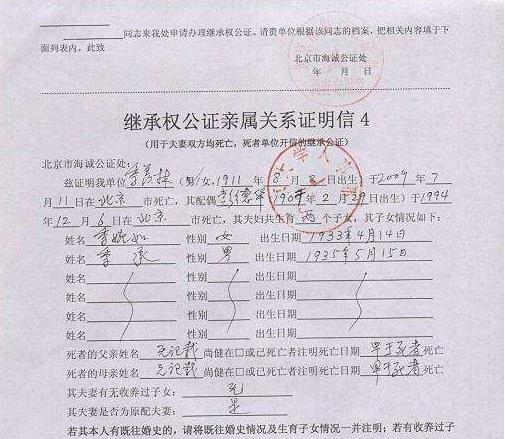 同志来我处申请办理继承权公证。请贵单位根据该同志的档案，把相关内容填于下
面列表内。此致
北京市海诚公证处
年 月 日
继承权公证亲属关系证明信4
（用于夫妻双方均死亡，死者单位开信的继承公证）
北京市海诚公证处：
兹证明我单位季羡林（男/女，1911年8月 日出生）于2009年7
月11日在北京市死亡，其配偶彭德华 1907年2月29日出生）于1994
年12月6日在北京市死亡，其夫妇共生育两个子女，其子女情况如下：
姓名 季婉如 性别 女 出生日期 1933年4月14日
姓名 季承 性别 男 出生日期 1935年5月15日
姓名 性别 出生日期
姓名 性别 出生日期
姓名 性别 出生日期
死者的父亲姓名 无记载 尚健在□或已死亡者注明死亡日期 早于死者死亡
死者的母亲姓名 无记载 尚健在□或已死亡者注明死亡日期 早于死者死亡
其夫妻有无收养过子女： 无
其夫妻是否为原配夫妻： 是
若其本人有既往婚史的，请将既往婚史情况及生育子女情况一并注明；若有收养过子